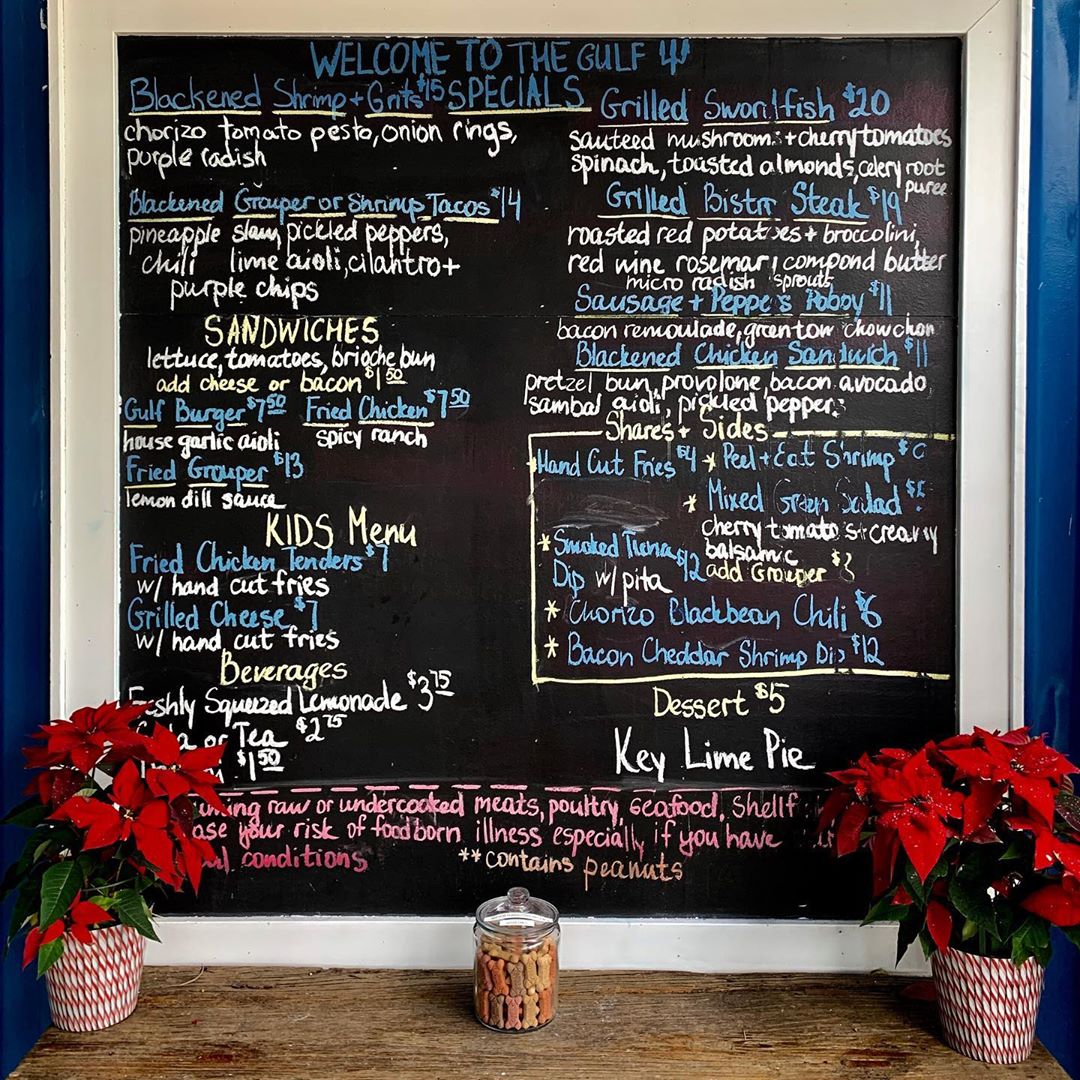 WELCOME TO THE GULF
SPECIALS
Blackened Shrimp + Grits $15
chorizo tomato pesto, onion rings,
purple radish
Blackened Grouper or Shrimp Tacos $14
pineapple slaw, pickled peppers,
chili lime aioli, cilantro +
purple chips
SANDWICHES
lettuce, tomatoes, brioche bun
add cheese or bacon $1.50
Gulf Burger $7.50 Fried Chicken $7.50
house garlic aioli spicy ranch
Fried Grouper $13
lemon dill sauce
KIDS Menu
Fried Chicken Tenders $7
w/ hand cut fries
Grilled Cheese $7
w/ hand cut fries
Beverages
Freshly Squeezed Lemonade $3.75
or Tea $2.75
$1.50
Grilled Swordfish $20
sauteed mushrooms + cherry tomatoes
spinach, toasted almonds, celery root
puree
Grilled Bistro Steak $19
roasted red potatoes + broccolini,
red wine rosemary compond butter
micro radish sprouts
Sausage + Peppers Poboy $11
bacon remoulade, green tom chow chow
Blackened Chicken Sandwich $11
pretzel bun, provolone, bacon, avocado,
sambal aioli, pickled peppers
Shares + Sides
Hand Cut Fries $4 * Peel + Eat Shrimp
* Mixed Green Salad
cherry tomatoes + creamy
balsamic
add Grouper
* Smoked Tuna $12
Dip w/ pita
* Chorizo Blackbean Chili $6
* Bacon Cheddar Shrimp Dip $12
Dessert $5
Key Lime Pie
raw or undercooked meats, poultry, seafood, shellf
your risk of foodborn illness especially if you have
conditions
**contains peanuts